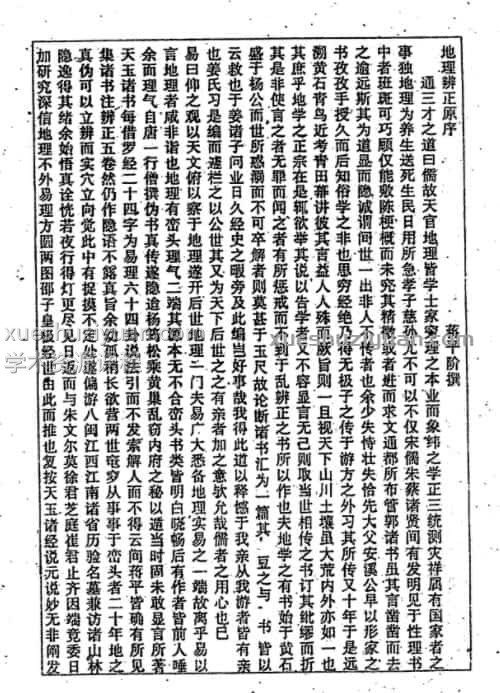 地理辨正原序
蒋平阶撰
通三才之道曰儒故天官地理皆学士家穷理之本业而象纬之学正三统测灾祥属有国家者之
事独地理为养生送死生民日用所急孝子慈孙尤不可以不仅宋儒朱蔡诸贤间有发明见于性理书
中者班班可巧顾仅能敷陈梗概而未究其精微或者进而求文通都所布管郭诸书虽其言凿凿而去
之逾远斯其为道显而隐诚谓间世一出非人不传者也余少失恃壮失怙先大父安溪公早以形家之
书孜孜手授久而后知俗学之非也思穷经绝乃得无极子之传于游方之外习其所传又十年于是远
溯黄石青鸟近考青田幕讲彼其言益人人殊而厥旨则一且视天下山川土壤虽大荒内外亦如一也
其庶乎地学之正宗在是辄欲举其说以告学者又不容显言无已则取当世相传之书订其纰缪而折
其是非使言之者无罪而闻之者有所惩戒而不到于乱辨正之书所以作也夫地学之有书始于黄石
盛于杨公而世所惑溺而不可卒解者则莫甚于玉尺故论断诸书汇为一篇其 豆之与 书 皆以
云救也于姜诸子问业日久经史之暇旁及此编岂好事哉我得此道以释憾于我亲从我游者皆有亲
也姜氏习是编而遽栏之以公世其又为天下后世之之有亲者加之意欤允哉儒者之用心也已
易曰仰之观以天文俯以察于地理遂开后世地理二门夫易广大悉备地理实易之一端故离乎易以
言地理者咸非诣也地理有峦头理气二端其源本无不合峦头书类皆明白晓畅后有作者皆前人唾
余而理气自唐一行僧撰伪书真传遂隐迨杨筠松乘黄巢乱窃内府之秘以遁当时固未敢显言所著
天玉诸书每借罗经二十四字为易理六十四卦说法引而不发索解人而不得云间蒋平皆确有所见
集诸书注辨正五卷然仍作隐语不露真旨余幼孤稍长欲营两世窀穸从事事于峦头者二十年地之
真伪可以立辨而实穴立向觉此中有捉摸不定处遂偏游八闽江西江南诸省历验名墓兼访诸山林
隐逸得其绪余始悟真诠恍若夜行得灯更尽见日返而与朱文尔英徐君芝庭崔君止齐因端竟委日
加研究深信地理不外易理方圆两图邵子皇极经世由此而推也复按天玉诸经说元说妙无非阐发